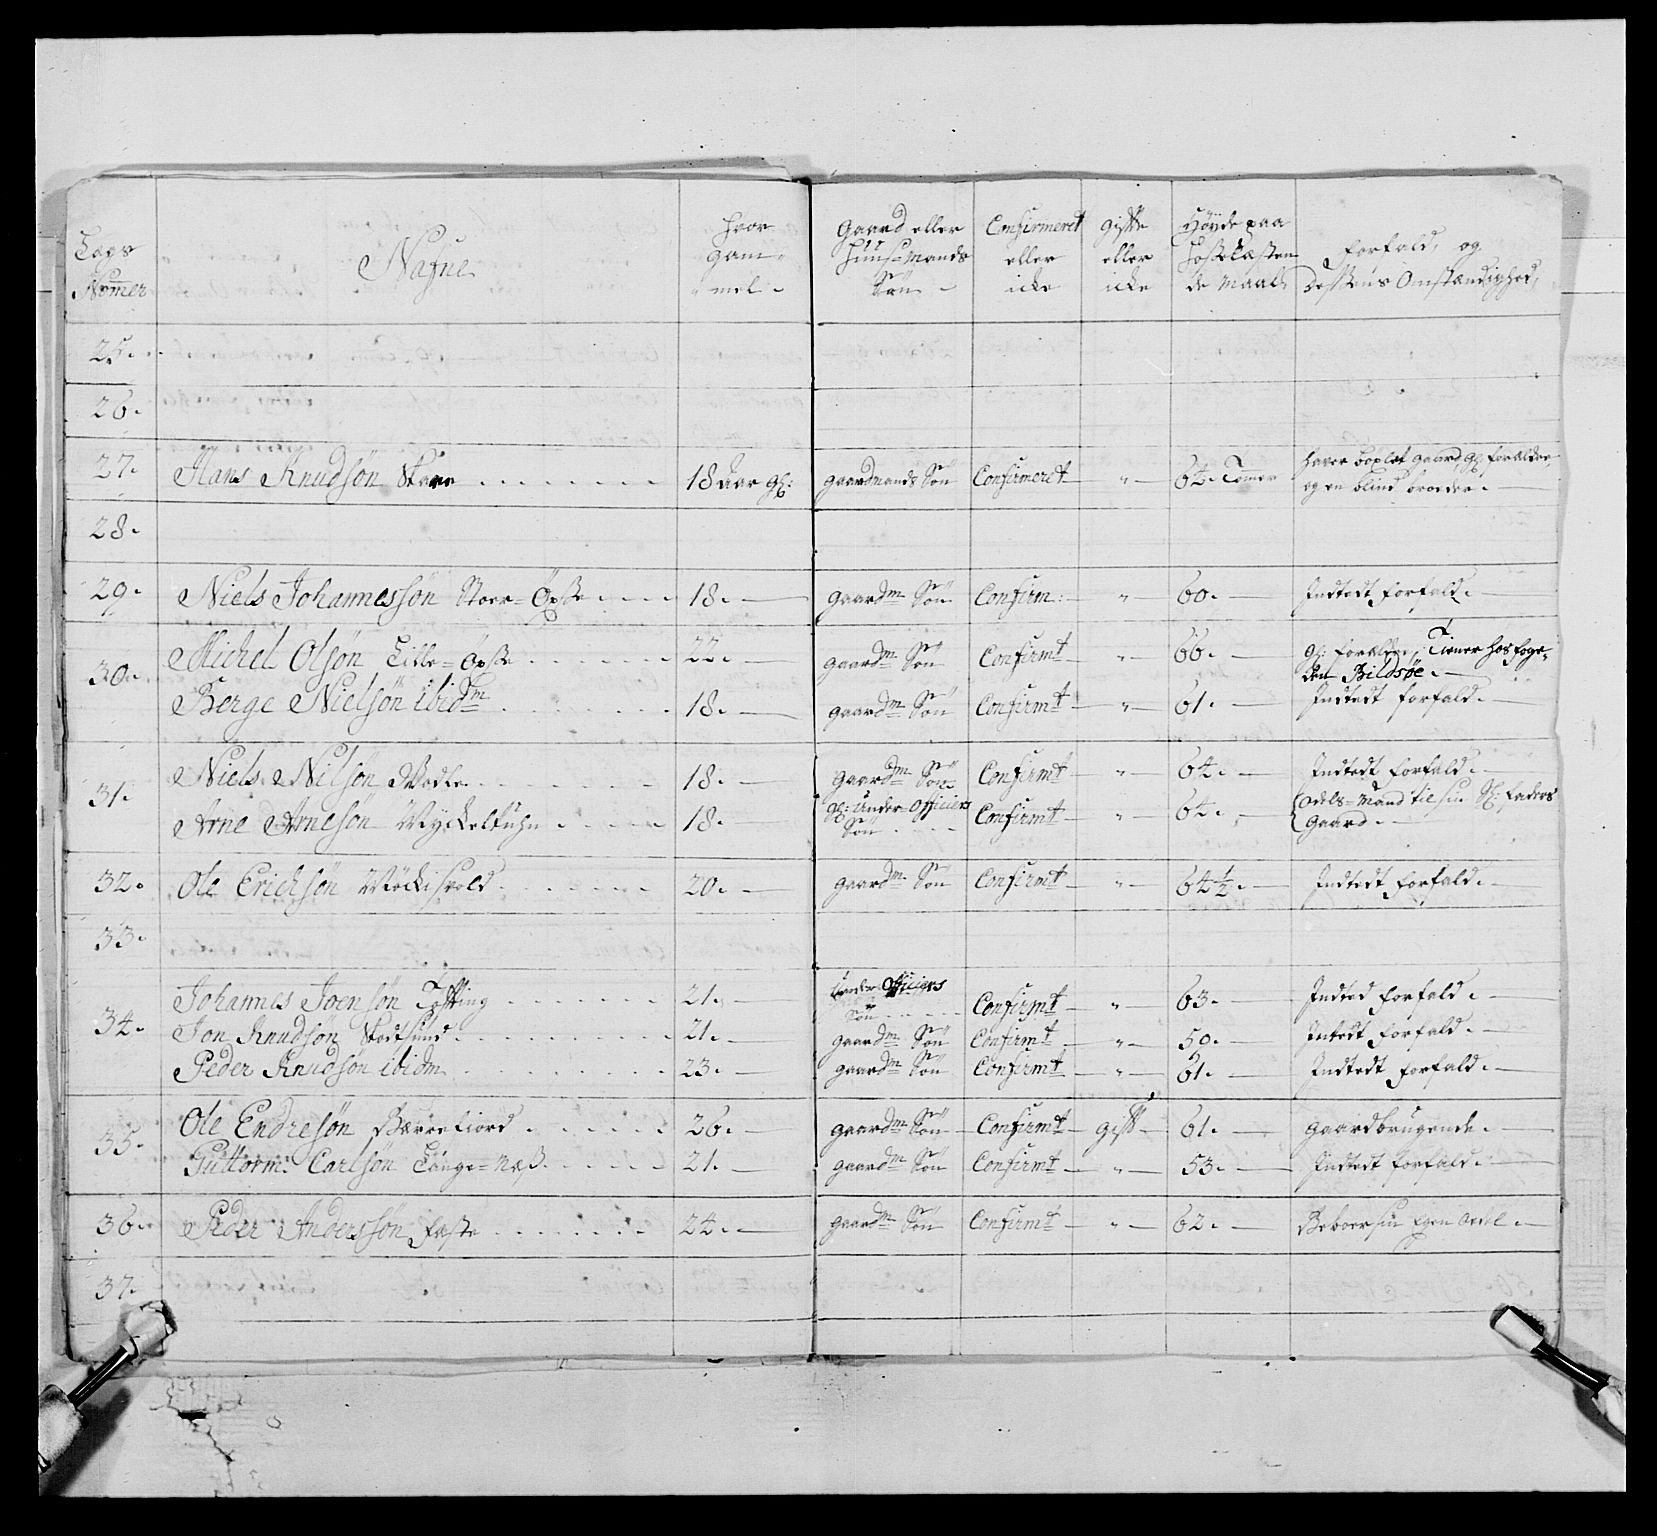 Lags Nommer | Nafne | hvor gam- mel | Gaard eller Huus-Mands Søn | Confirmeret eller icke | gifte eller icke | Høyde paa Hosekasten de Maal | Forfald, og Dessens Omstændighed,
25.
26.
27. Hans Knudsøn Skare 18 Aar gl: gaardmands Søn Confirmeret " 64. Tomer haver boxlet gaard, gl: forældre, og en blind broeder.
28.
29. Niels Johannessøn Stoer-Øxse 18. gaardm Søn Confirm: " 60. Indtedt forfald.
30. Michel Olsøn Lille-Øxse 22. gaardm Søn Confirmt " 66. gl: forældre, Tiener hos foge- den Bildsøe.
Berge Nielsøn ibidm 18. gaardm Søn Confirmt " 61. Indtedt forfald.
31. Niels Nilsøn 18. gaardm Søn Confirmt " 64. Indtedt forfald.
Arne Arnesøn Myckeltuhn 18. gl: Under-Officiers Søn Confirmt " 64. Odels-Mand til sin Sl: Faders Gaard.
32. Ole Erichsøn Møckisvold 20. gaardm Søn Confirmt " 64½. Indtedt forfald.
33.
34. Johannes Joensøn Tøfting 21. Under Officiers Søn Confirmt " 63. Indted forfald.
Jon Knudsøn Skotsund 21. gaardm Søn Confirmt " 59. Intedt forfald.
Peder Knudsøn ibidm 23. gaardm Søn Confirmt " 61. Indtedt forfald.
35. Ole Endresøn Bærrefiord 26. gaardm Søn Confirmt gift 61. gaardbrugende.
Guttorm Carlsøn Lange-Næss 21. gaardm Søn Confirmt " 53. Indtedt forfald.
36. Peder Andersøn Faste 24. gaardm Søn Confirmt " 62. Beboer sin Egen Oedel.
37.